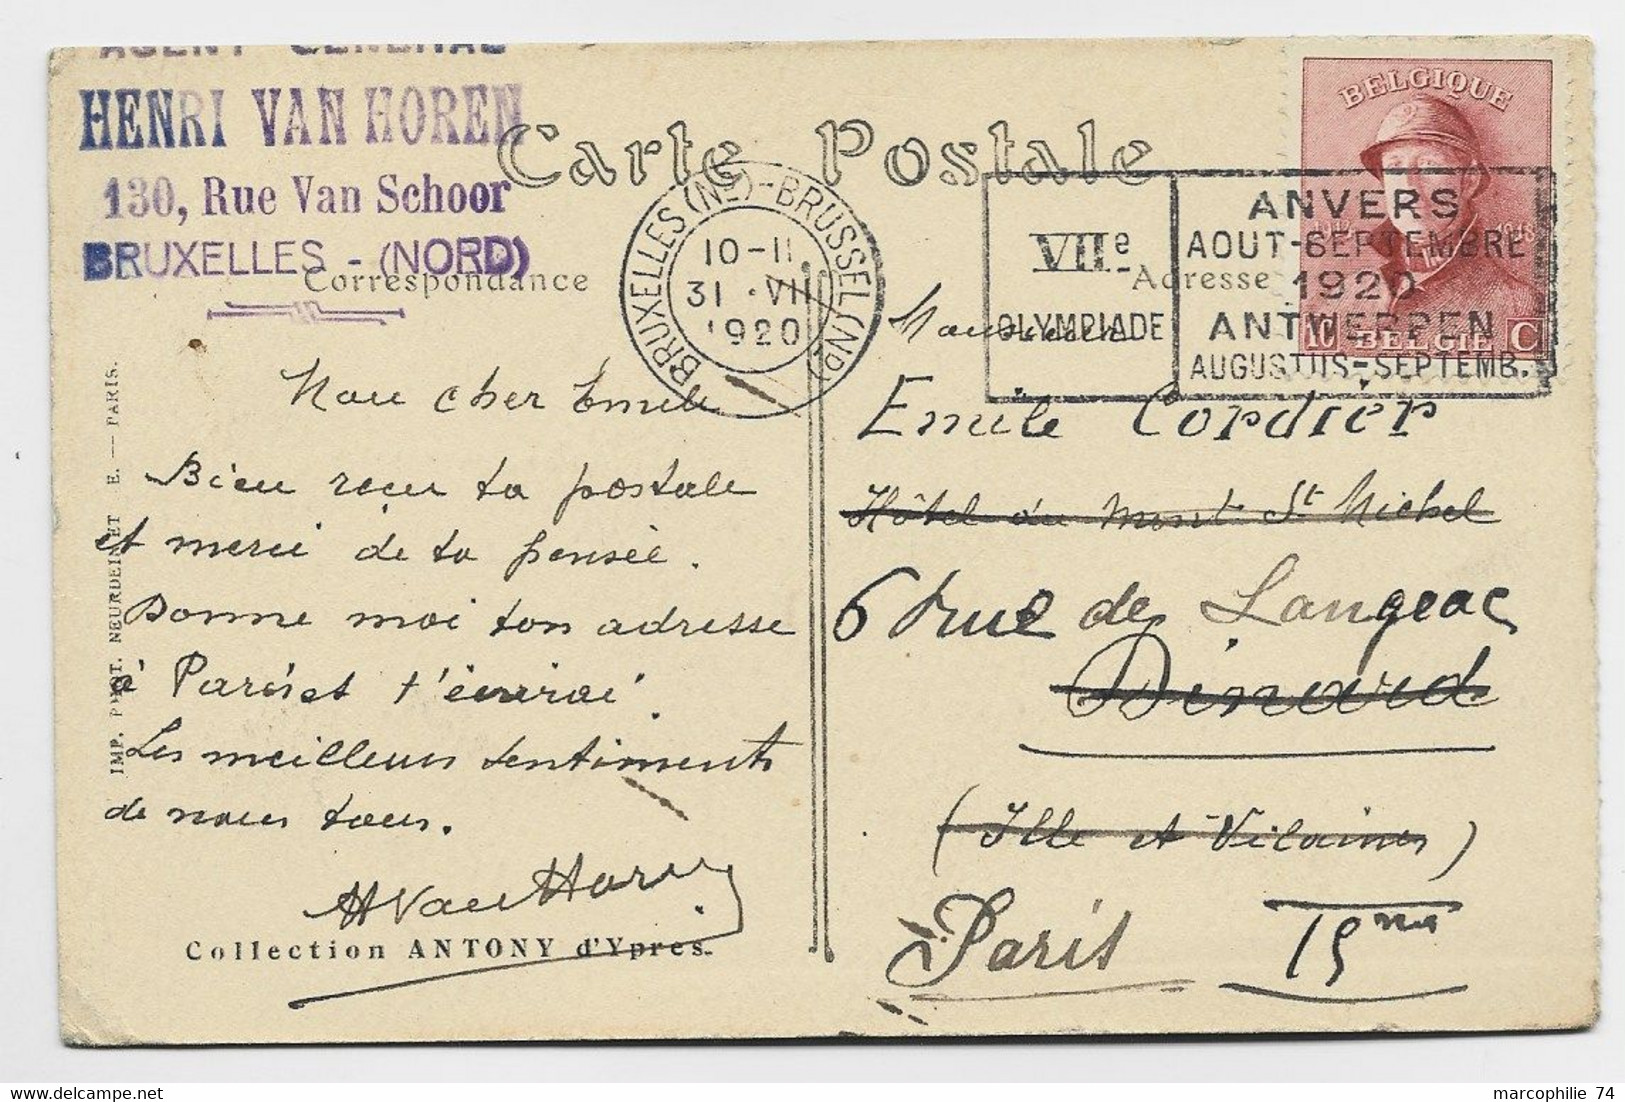 AGENT GENERAL
HENRI VAN HOREN
130, Rue Van Schoor
BRUXELLES - (NORD)
Carte Postale
Correspondance
Adresse
BRUXELLES (Nd) - BRUSSEL (Nd)
10-11
31 · VII
1920
VIIe
OLYMPIADE
ANVERS
AOUT-SEPTEMBRE
1920
ANTWERPEN
AUGUSTUS-SEPTEMB.
BELGIQUE
10 BELGIË C
Mon cher Emile
Bien reçu ta postale
et merci de ta pensée.
Donne moi ton adresse
à Paris et t'écrirai.
Les meilleurs sentiments
de nous tous.
HVanHoren
Collection ANTONY d'Ypres.
IMP. PHOT. NEURDEIN ET E. — PARIS.
Monsieur
Emile Cordier
Hôtel du Mont St Michel
6 rue de Langeac
Dinard
(Ille et Vilaine)
Paris 15me
marcophilie 74